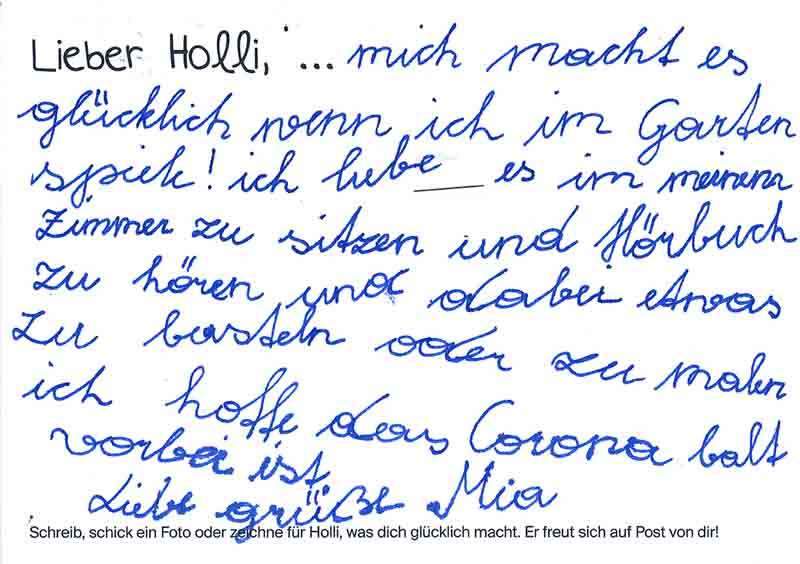 Lieber Holli, ... mich macht es
glücklich wenn ich im Garten
spiele! ich liebe es im meinem
Zimmer zu sitzen und Hörbuch
zu hören und dabei etwas
zu basteln oder zu malen
ich hoffe das Corona balt
vorbei ist
Liebe grüße Mia
Schreib, schick ein Foto oder zeichne für Holli, was dich glücklich macht. Er freut sich auf Post von dir!